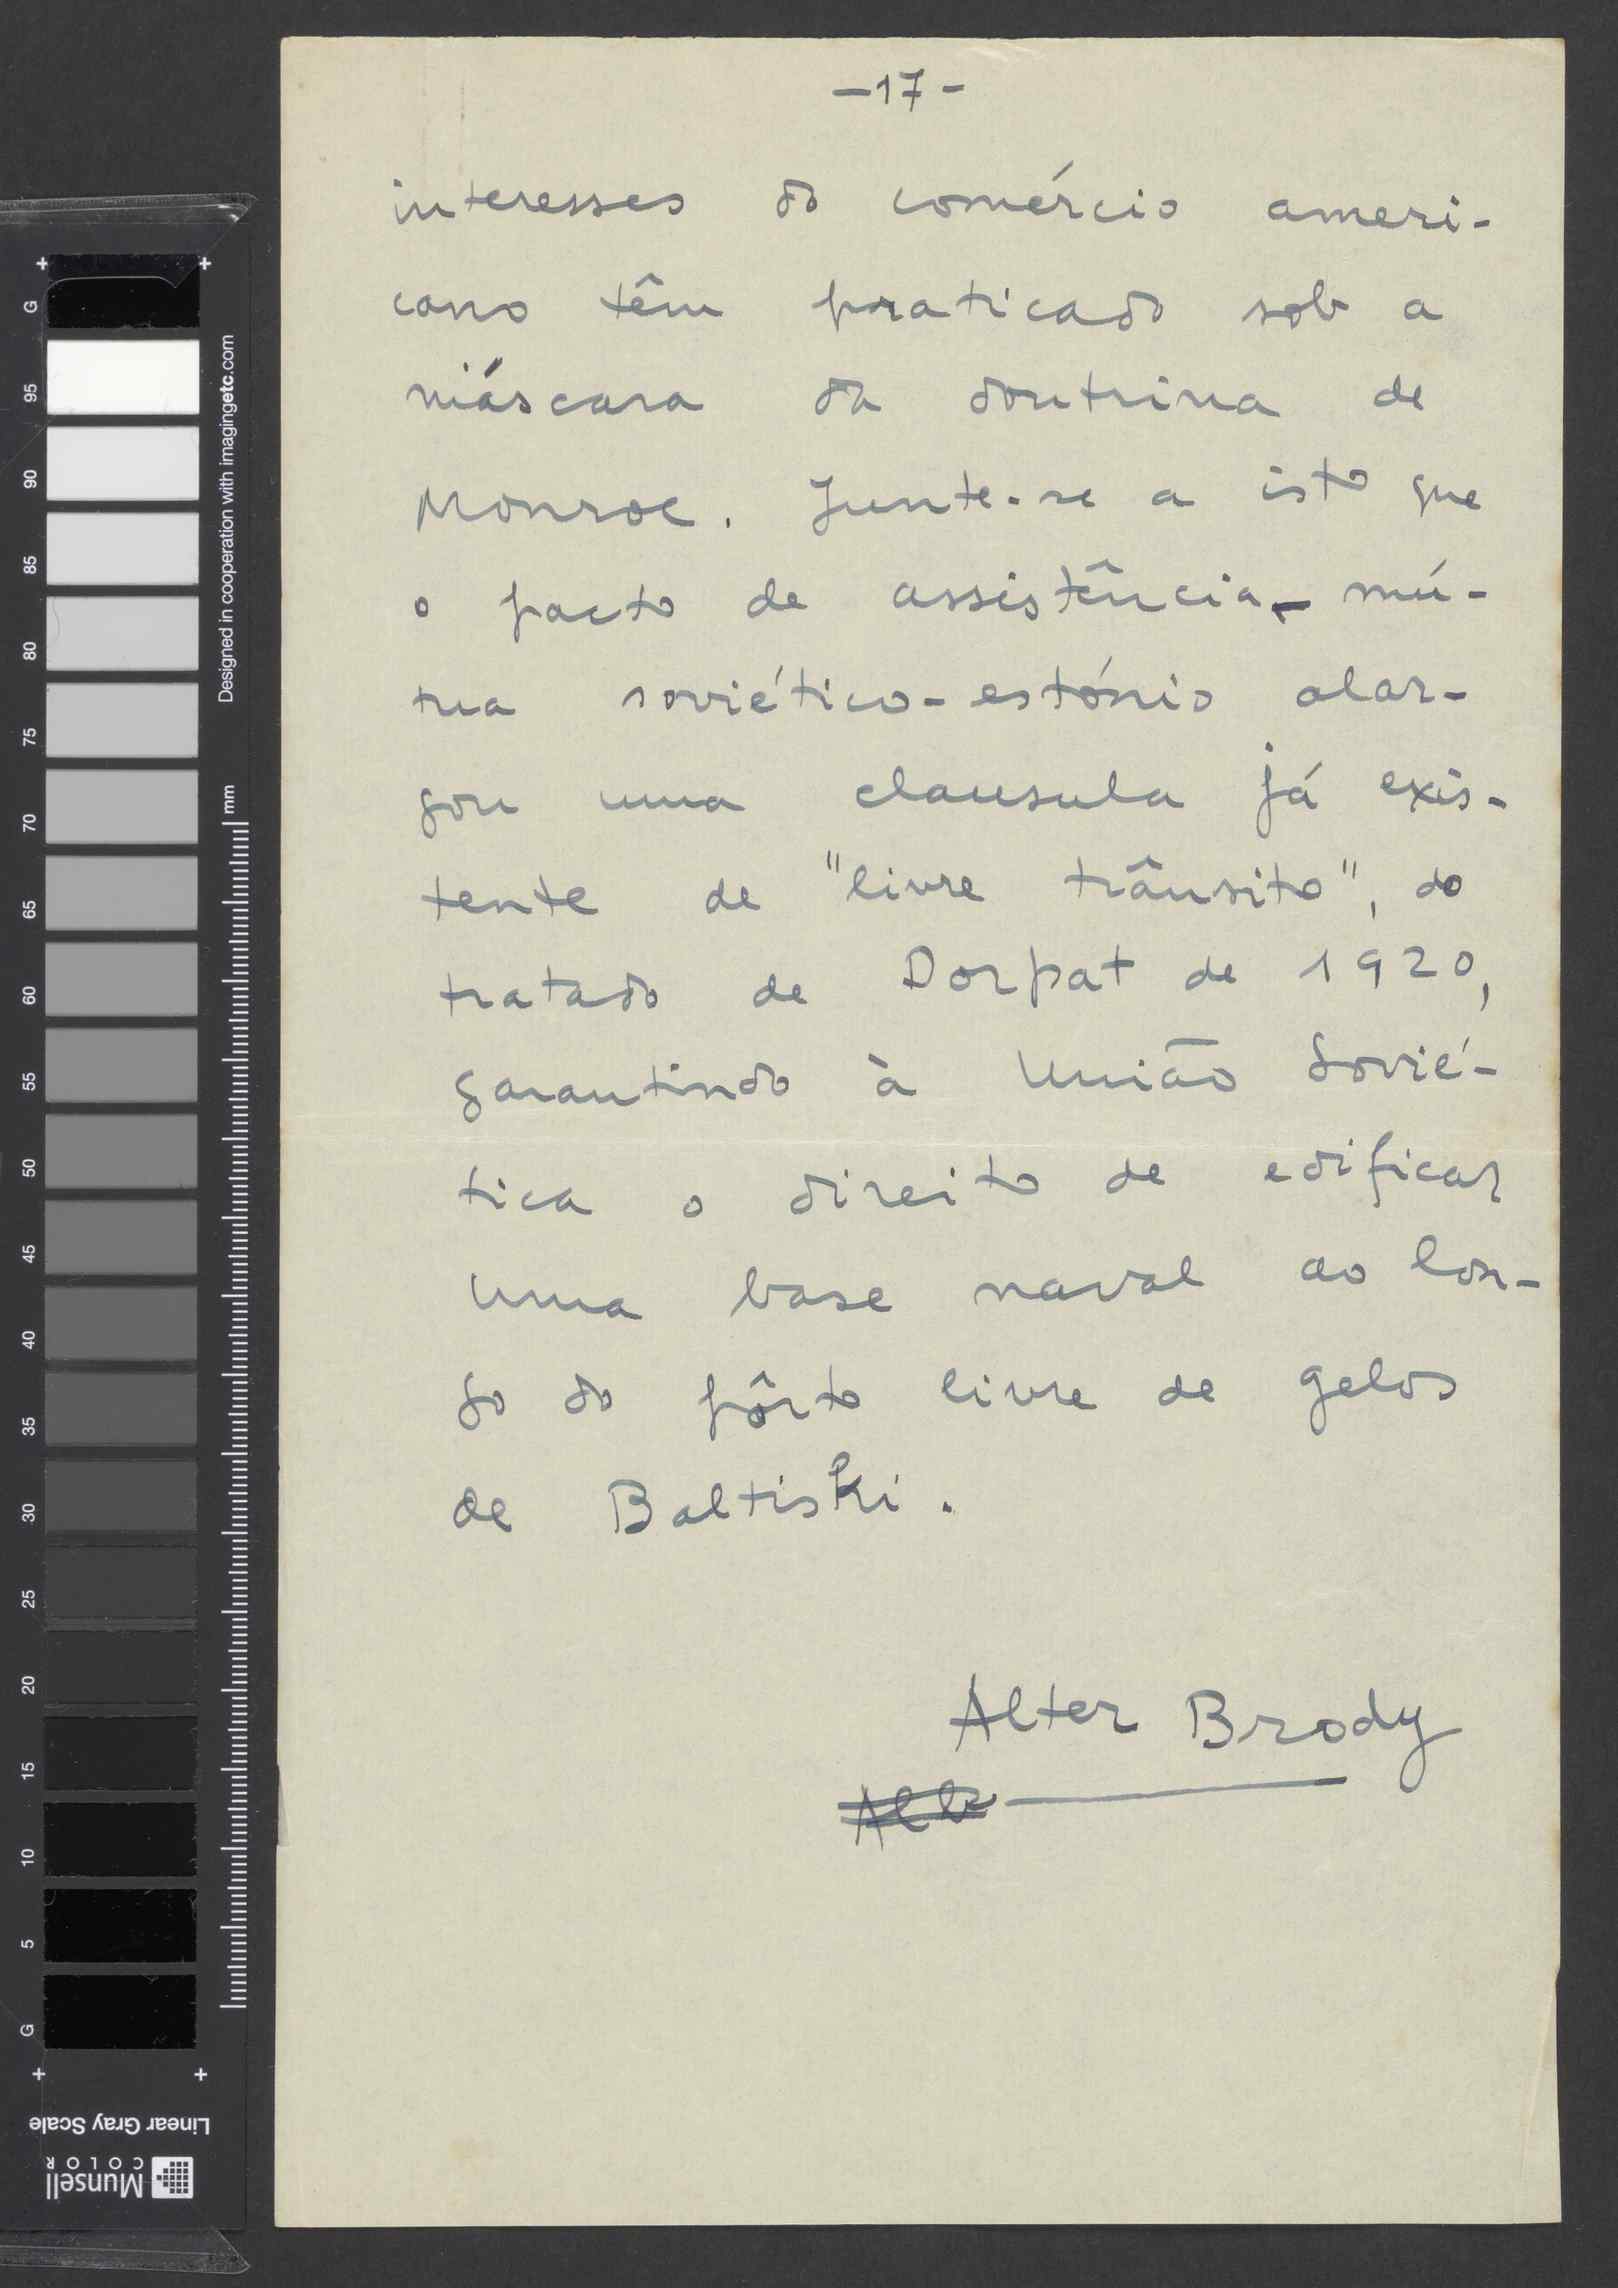 -17-
interesses do comércio ameri-
cano têm praticado sob a
máscara da doutrina de
Monroe. Junte-se a isto que
o pacto de assistência mú-
tua soviético-estónio alar-
gou uma clausula já exis-
tente de "livre trânsito", do
tratado de Dorpat de 1920,
garantindo à União Sovié-
tica o direito de edificar
uma base naval ao lon-
go do pôrto livre de gelos
de Baltiski.
Alter Brody
G
95
90
85
80
75
70
65
60
55
50
45
40
35
30
25
20
15
10
5
G
Designed in cooperation with imagingetc.com
mm
Linear Gray Scale
Munsell
COLOR